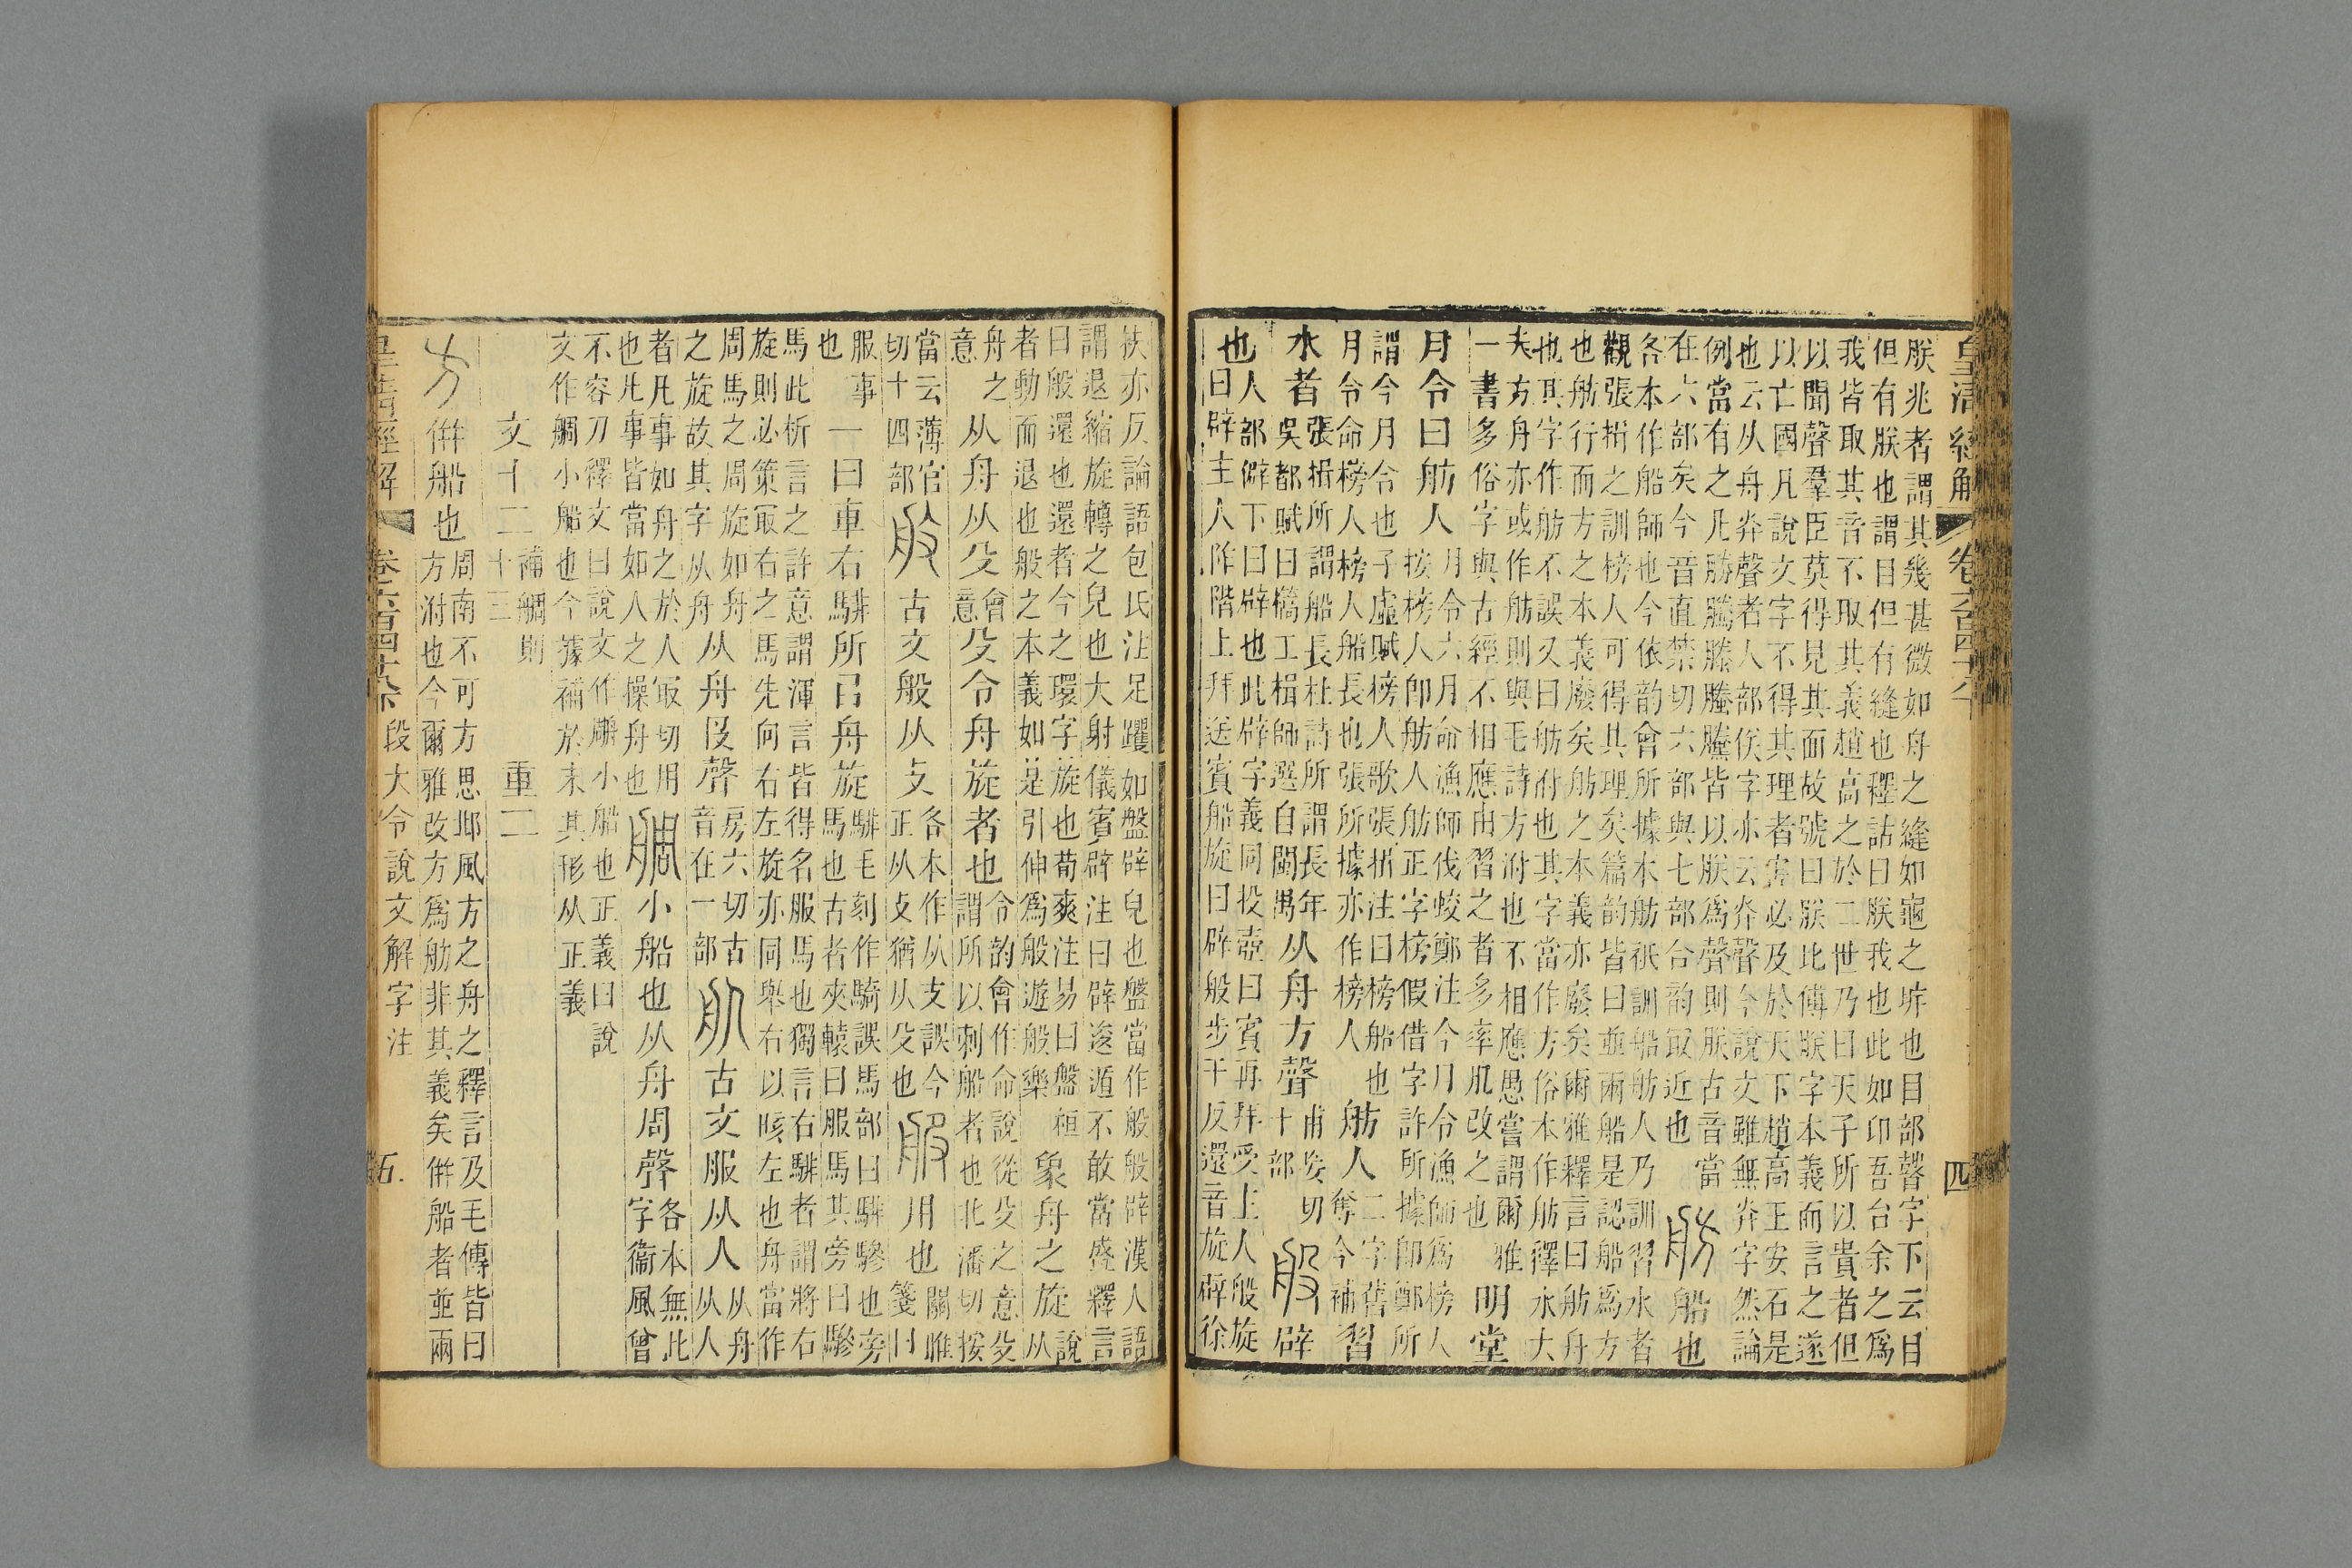 皇清經解 卷六百四十八 四
朕兆者謂其幾甚微如舟之縫如龜之坼也目部瞽字下云目
但有朕也謂目但有縫也釋詁曰朕我也此如卬吾台余之爲
我皆取其音不取其義趙高之於二世乃曰天子所以貴者但
以聞聲羣臣莫得見其面故號曰朕此傅朕字本義而言之遂
以亡國凡說文字不得其理者害必及於天下趙高王安石是
也云从舟灷聲者人部字亦云灷聲今說文雖無灷字然論
例當有之凡勝騰滕螣皆以朕爲聲則朕古音當
在六部矣今音直禁切六部與七部合韵取近也
舫船也
各本作船師也今依韵會所據本舫祇訓船舫人乃訓習水者
觀張揖之訓榜人可得其理矣篇韵皆曰並兩船是認船爲方
也舫行而方之本義廢矣舫之本義亦廢矣爾雅釋言曰舫舟
也其字作舫不誤又曰舫泭也其字當作方俗本作舫釋水大
夫方舟亦或作舫則與毛詩方泭也不相應愚嘗謂爾雅
一書多俗字與古經不相應由習之者多率肌改之也
明堂
月令曰舫人
月令六月命漁師伐蛟鄭注今月令漁師爲榜人
按榜人卽舫人舫正字榜假借字許所據卽鄭所
謂今月令也子虛賦榜人歌張揖注曰榜船也
月令命榜人榜人船長也張所據亦作榜人
舫人二字舊奪今補習
水者張揖所謂船長杜詩所謂長年吳都賦曰檣工楫師選自閩禺从舟方聲甫妄切十部般辟
也人部僻下曰辟也此辟字義同投壺曰賓再拜受主人般旋
曰辟主人阼階上拜送賓船旋曰辟般步干反還音旋辟徐
扶亦反論語包氏注足躩如盤辟皃也盤當作般般辟漢人語
謂退縮旋轉之皃也大射儀賓辟注曰辟逡遁不敢當盛釋言
曰般還也還者今之環字旋也荀爽注易曰盤桓
者動而退也般之本義如是引伸爲般遊般樂
象舟之旋說从
舟之意从舟从殳會意殳令舟旋者也令韵會作命說從殳之意殳謂所以刺船者也北潘切按
當云薄官切十四部般古文般从攴各本作从支誤今正从攴猶从殳也服用也關雎箋曰
服事也一曰車右騑所㠯舟旋騑毛刻作騎誤馬部曰騑驂也旁馬也古者夾轅曰服馬其旁曰驂
馬此析言之許意謂渾言皆得名服馬也獨言右騑者謂將右
旋則必策冣右之馬先向右左旋亦同舉右以晐左也舟當作
周馬之周旋如舟之旋故其字从舟从舟𠬝聲房六切古音在一部古文服从人从舟从人
者凡事如舟之於人冣切用也凡事皆當如人之操舟也鵃小船也从舟周聲各本無此字衞風曾
不容刀釋文曰說文作小船也正義曰說
文作小船也今據補於末其形从正義
文十二補則十三 重二
方倂船也周南不可方思邶風方之舟之釋言及毛傳皆曰方泭也今爾雅改方爲舫非其義矣倂船者並兩
皇清經解 卷六百四十八 段大令說文解字注 五